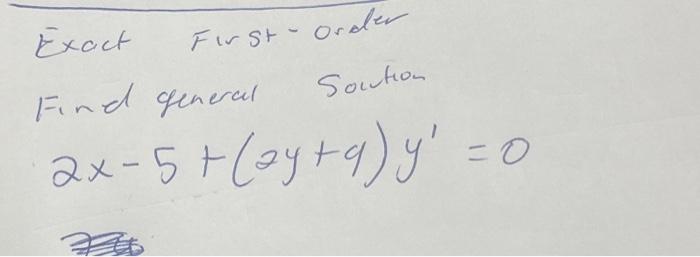 Exact First-order
Find general Soution
2x-5+(2y+9)y' = 0